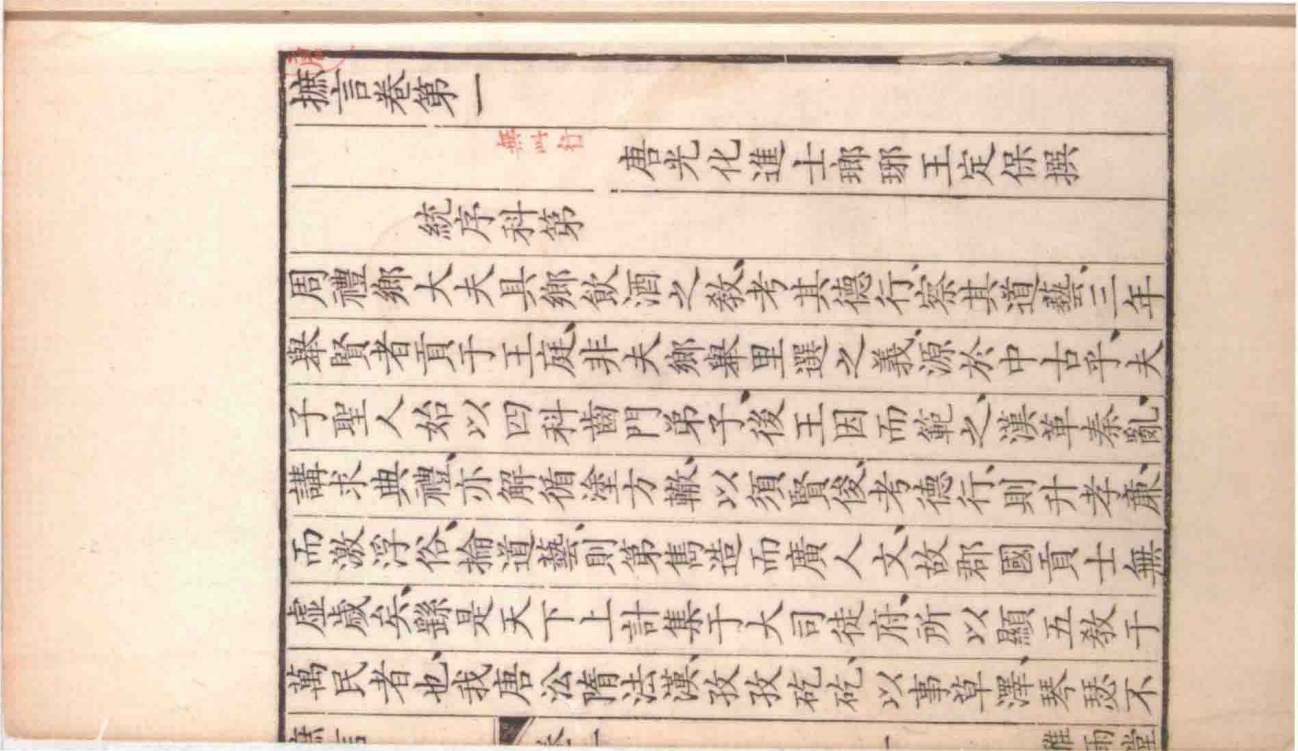 唐
摭言卷第一
無此行
唐光化進士瑯琊王定保撰
統序科第
周禮鄉大夫具鄉飲酒之敎考其德行察其道藝三年
舉賢者貢于王庭非夫鄉舉里選之義源於中古乎夫
子聖人始以四科齒門弟子後王因而範之漢革秦亂
講求典禮亦解循塗方轍以須賢俊考德行則升孝廉
而激浮俗掄道藝則第雋造而廣人文故郡國貢士無
虛歲矣繇是天下上計集于大司徒府所以顯五敎于
萬民者也我唐㳂隋法漢孜孜矻矻以事草澤琴瑟不
摭言
卷一
一
雅雨堂